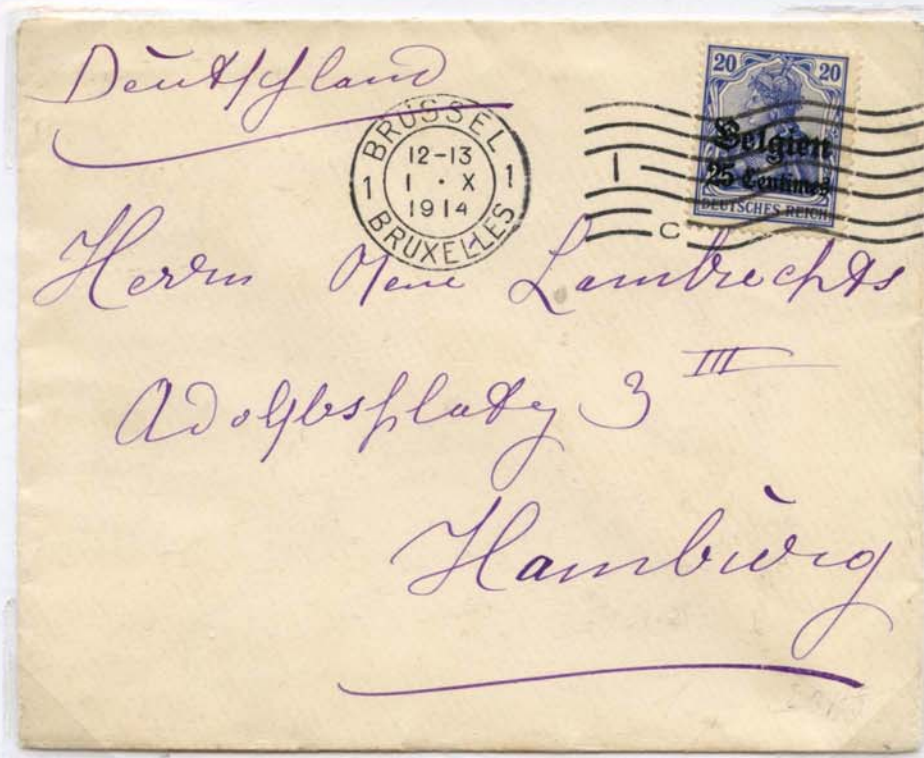 Deutschland
BRÜSSEL
12-13
1 1
1 · X
1914
BRUXELLES
1
C
20 20
Belgien
25 Centimes
DEUTSCHES REICH
Herrn René Lambrechts
Adolfsplatz 3 III
Hamburg